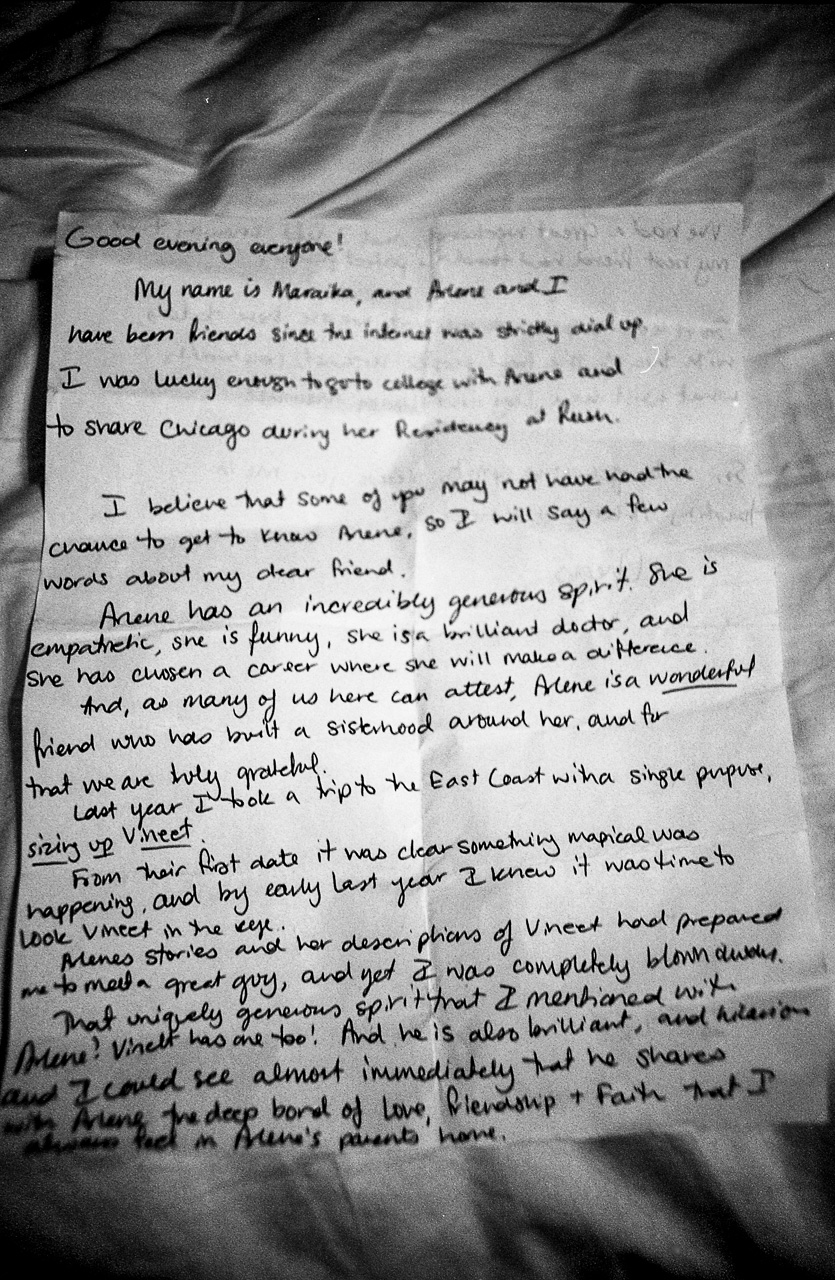 Good evening everyone!
My name is Maraika, and Arlene and I
have been friends since the internet was strictly dial up
I was lucky enough to go to college with Arlene and
to share Chicago during her Residency at Rush.
I believe that some of you may not have had the
chance to get to know Arlene, so I will say a few
words about my dear friend.
Arlene has an incredibly generous spirit. She is
empathetic, she is funny, she is a brilliant doctor, and
she has chosen a career where she will make a difference.
And, as many of us here can attest, Arlene is a wonderful
friend who has built a sisterhood around her, and for
that we are truly grateful.
Last year I took a trip to the East Coast with a single purpose,
sizing up Vineet.
From their first date it was clear something magical was
happening, and by early last year I knew it was time to
look Vineet in the eye.
Arlenes stories and her descriptions of Vineet had prepared
me to meet a great guy, and yet I was completely blown away.
That uniquely generous spirit that I mentioned with
Arlene? Vineet has one too! And he is also brilliant, and hilarious
and I could see almost immediately that he shares
with Arlene the deep bond of love, friendship + Faith that I
always feel in Arlene's parents home.